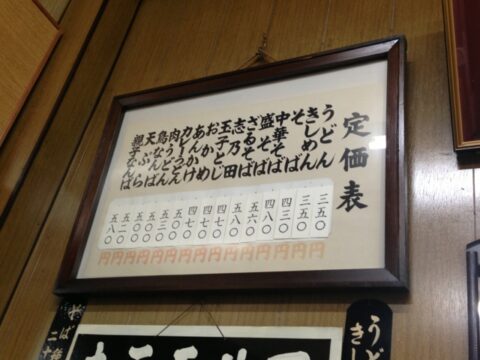 定価表
うどん
きしめん
そば
中華そば
盛そば
ざるそば
志乃田
玉子とじ
おかめ
あんかけ
力うどん
肉うどん
鳥なんば
天ぷら
親子なんば
三五〇円
三五〇円
四三〇円
四八〇円
五六〇円
五八〇円
四七〇円
四七〇円
五〇〇円
五三〇円
五〇〇円
五二〇円
五八〇円
うど
きし